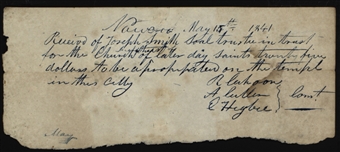 Nauvoo May 15th 1841
Receivd of Joseph Smith Sole trustee in trust
for the Church of later day saints twenty five
dollars to be apropriated on the temple
in this City
R Cahoon
A Cutler
E Higbee
Comt
May